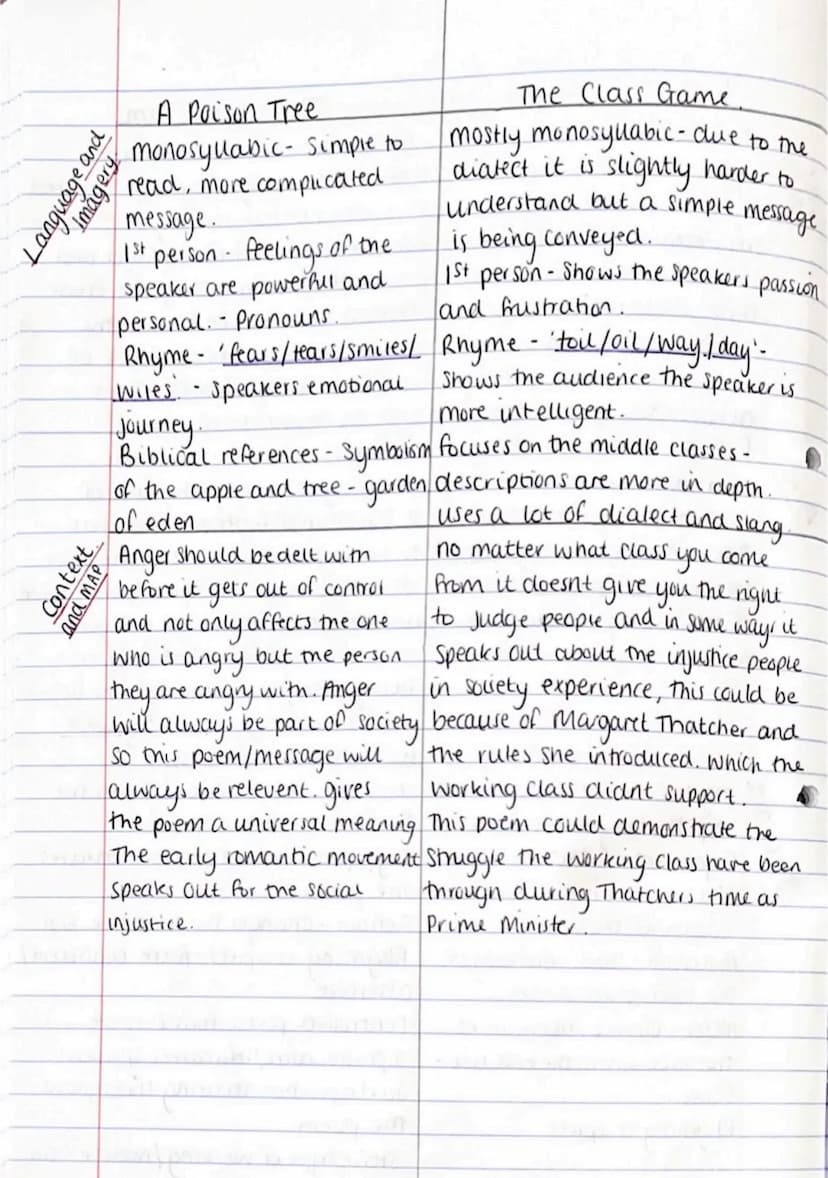 A Poison Tree
Language and
Imagery
monosyllabic- simple to
read, more complicated
message.
1st person - feelings of the
speaker are powerful and
personal. - Pronouns.
Rhyme - 'fears/tears/smiles/
wiles' - speakers emotional
journey.
Biblical references - Symbolism
of the apple and tree - garden
of eden
Context
and MAP
Anger should be delt with
before it gets out of control
and not only affects the one
who is angry but the person
they are angry with. Anger
will always be part of society
so this poem/message will
always be relevent. gives
the poem a universal meaning
The early romantic movement
speaks out for the social
injustice.
The Class Game.
mostly monosyllabic - due to the
dialect it is slightly harder to
understand but a simple message
is being conveyed.
1st person - Shows the speakers passion
and frustration.
Rhyme - 'toil/oil/way/day' -
shows the audience the speaker is
more intelligent.
focuses on the middle classes -
descriptions are more in depth.
uses a lot of dialect and slang
no matter what class you come
from it doesnt give you the right
to judge people and in some ways it
speaks out about the injustice people
in society experience, this could be
because of Margaret Thatcher and
the rules she introduced. which the
working class didnt support.
This poem could demonstrate the
struggle the working class have been
through during Thatchers time as
Prime Minister.